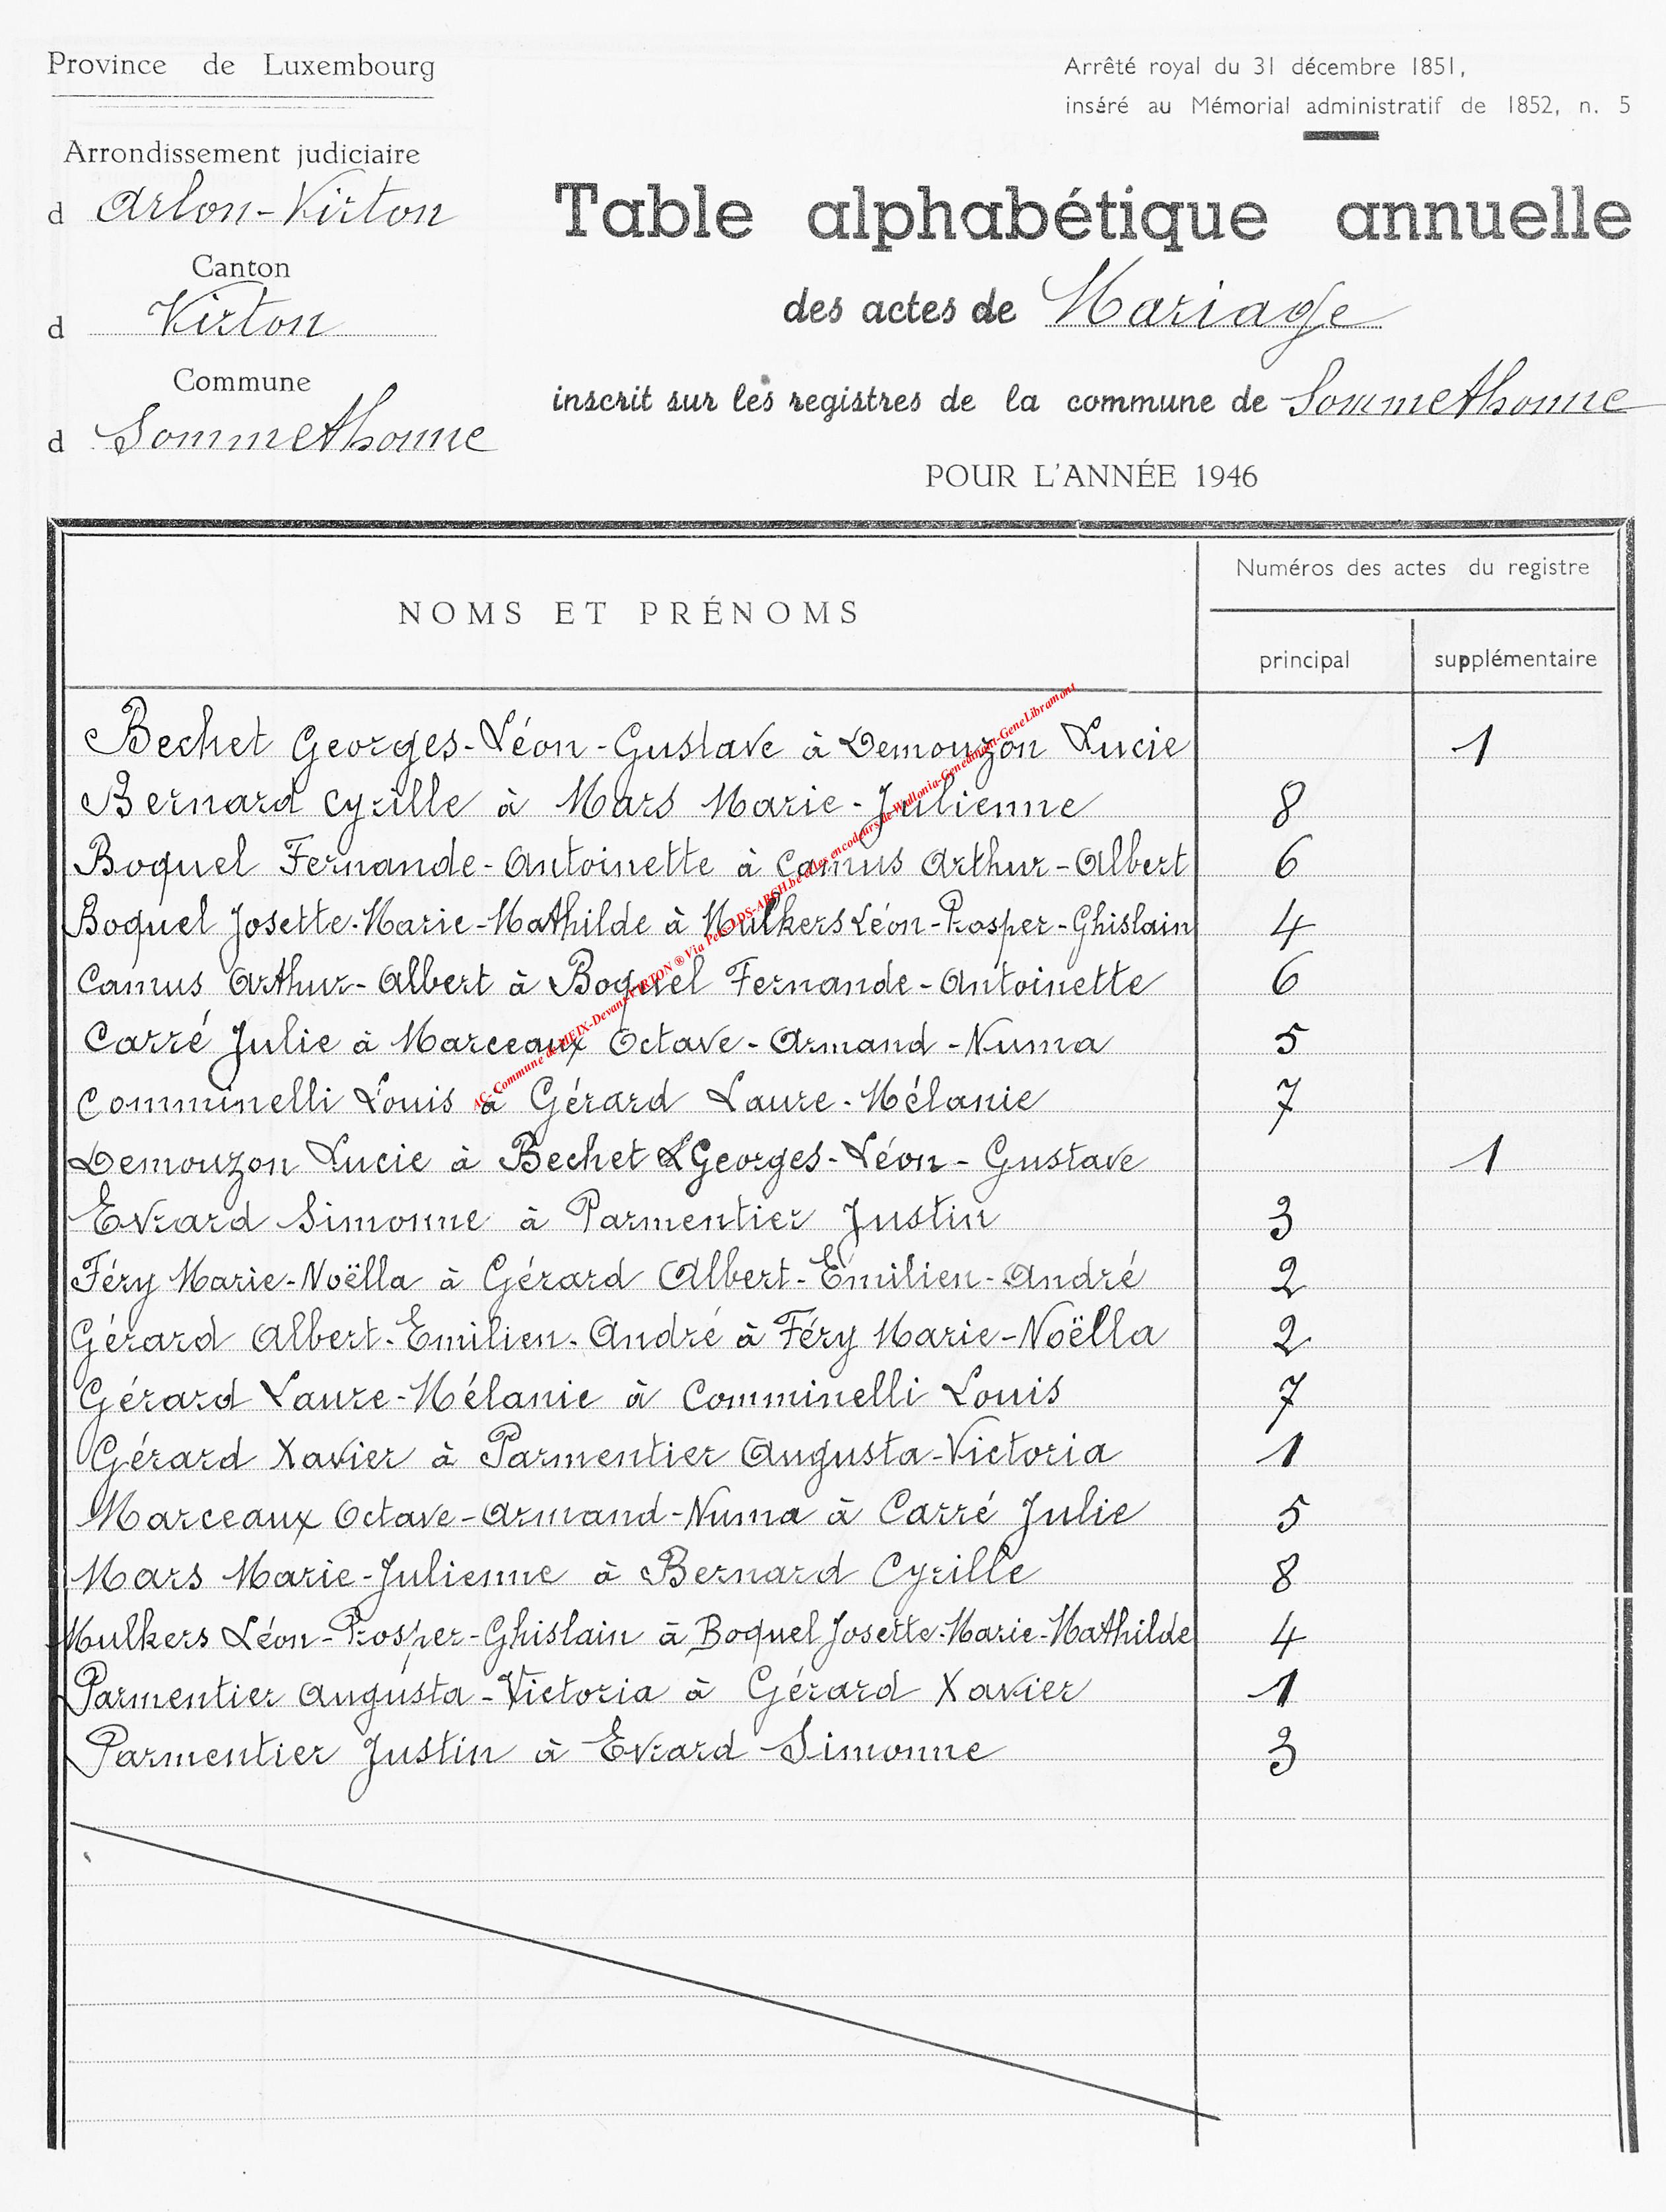 Province de Luxembourg
Arrêté royal du 31 décembre 1851,
inséré au Mémorial administratif de 1852, n. 5
Arrondissement judiciaire
d Arlon-Virton
Table alphabétique annuelle
Canton
d Virton
des actes de Mariage
Commune
d Sommethonne
inscrit sur les registres de la commune de Sommethonne
POUR L'ANNÉE 1946
NOMS ET PRÉNOMS
Numéros des actes du registre
principal supplémentaire
Bechet Georges-Léon-Gustave à Demouzon Lucie 1
Bernard Cyrille à Mars Marie-Julienne 8
Boquel Fernande-Antoinette à Camus Arthur-Albert 6
Boquel Josette-Marie-Mathilde à Mulkers Léon-Prosper-Ghislain 4
Camus Arthur-Albert à Boquel Fernande-Antoinette 6
Carré Julie à Marceaux Octave-Armand-Numa 5
Comminelli Louis à Gérard Laure-Mélanie 7
Demouzon Lucie à Bechet Georges-Léon-Gustave 1
Evrard Simonne à Parmentier Justin 3
Féry Marie-Noëlla à Gérard Albert-Emilien-André 2
Gérard Albert-Emilien-André à Féry Marie-Noëlla 2
Gérard Laure-Mélanie à Comminelli Louis 7
Gérard Xavier à Parmentier Augusta-Victoria 1
Marceaux Octave-Armand-Numa à Carré Julie 5
Mars Marie-Julienne à Bernard Cyrille 8
Mulkers Léon-Prosper-Ghislain à Boquel Josette-Marie-Mathilde 4
Parmentier Augusta-Victoria à Gérard Xavier 1
Parmentier Justin à Evrard Simonne 3